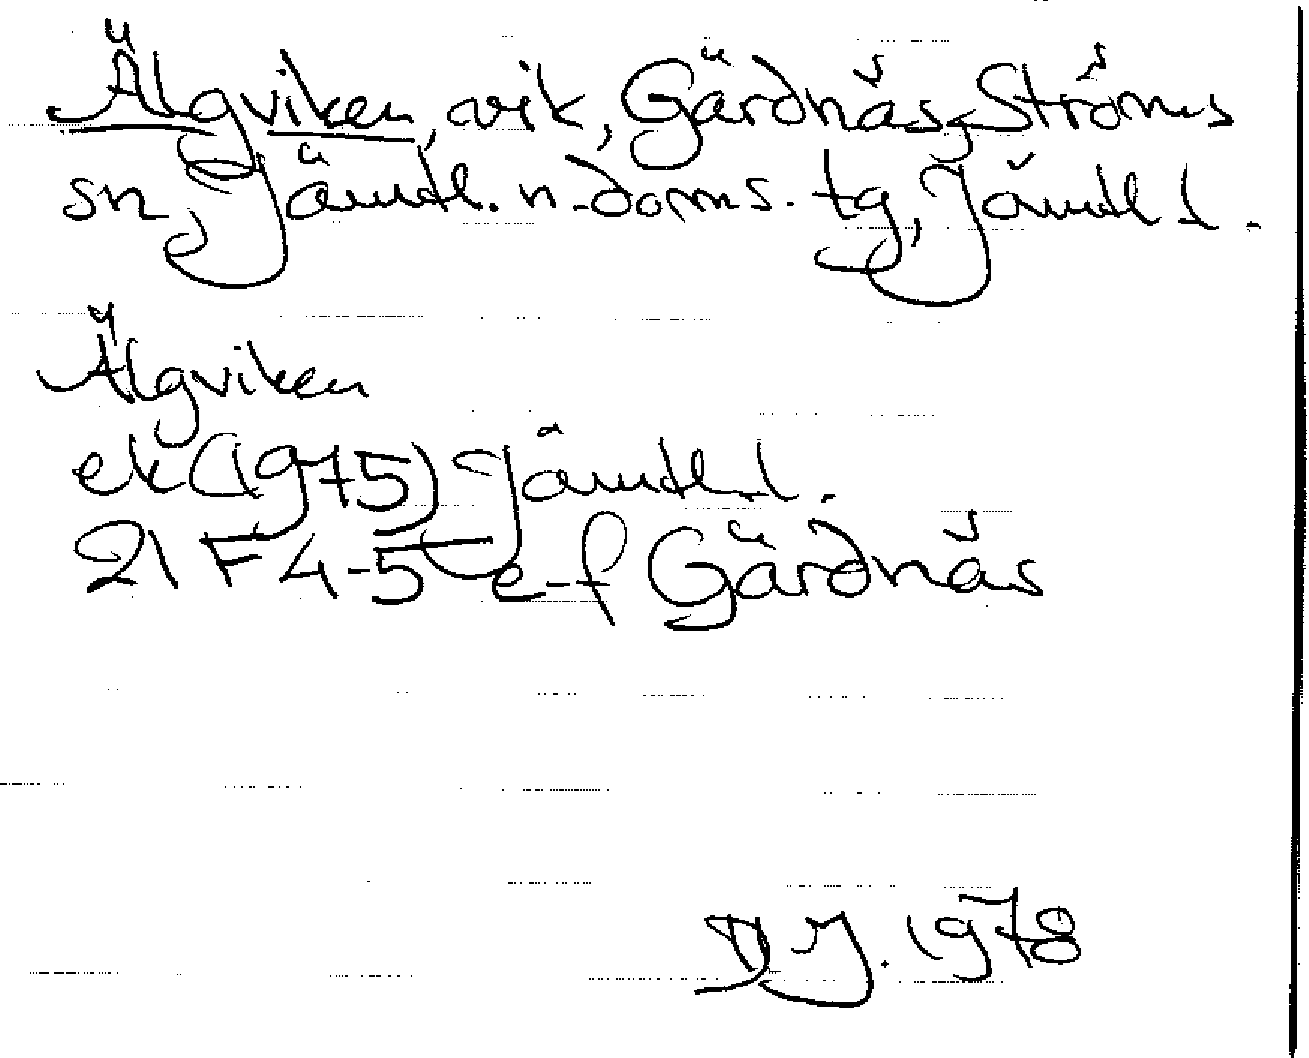 Älgviken, vik, Gärdnäs, Ströms
sn, Jämtl. n. doms. tg, Jämtl l.
Älgviken
ek (1975) Jämtl. l.
21 F 4-5 e-f Gärdnäs
DJ. 1978